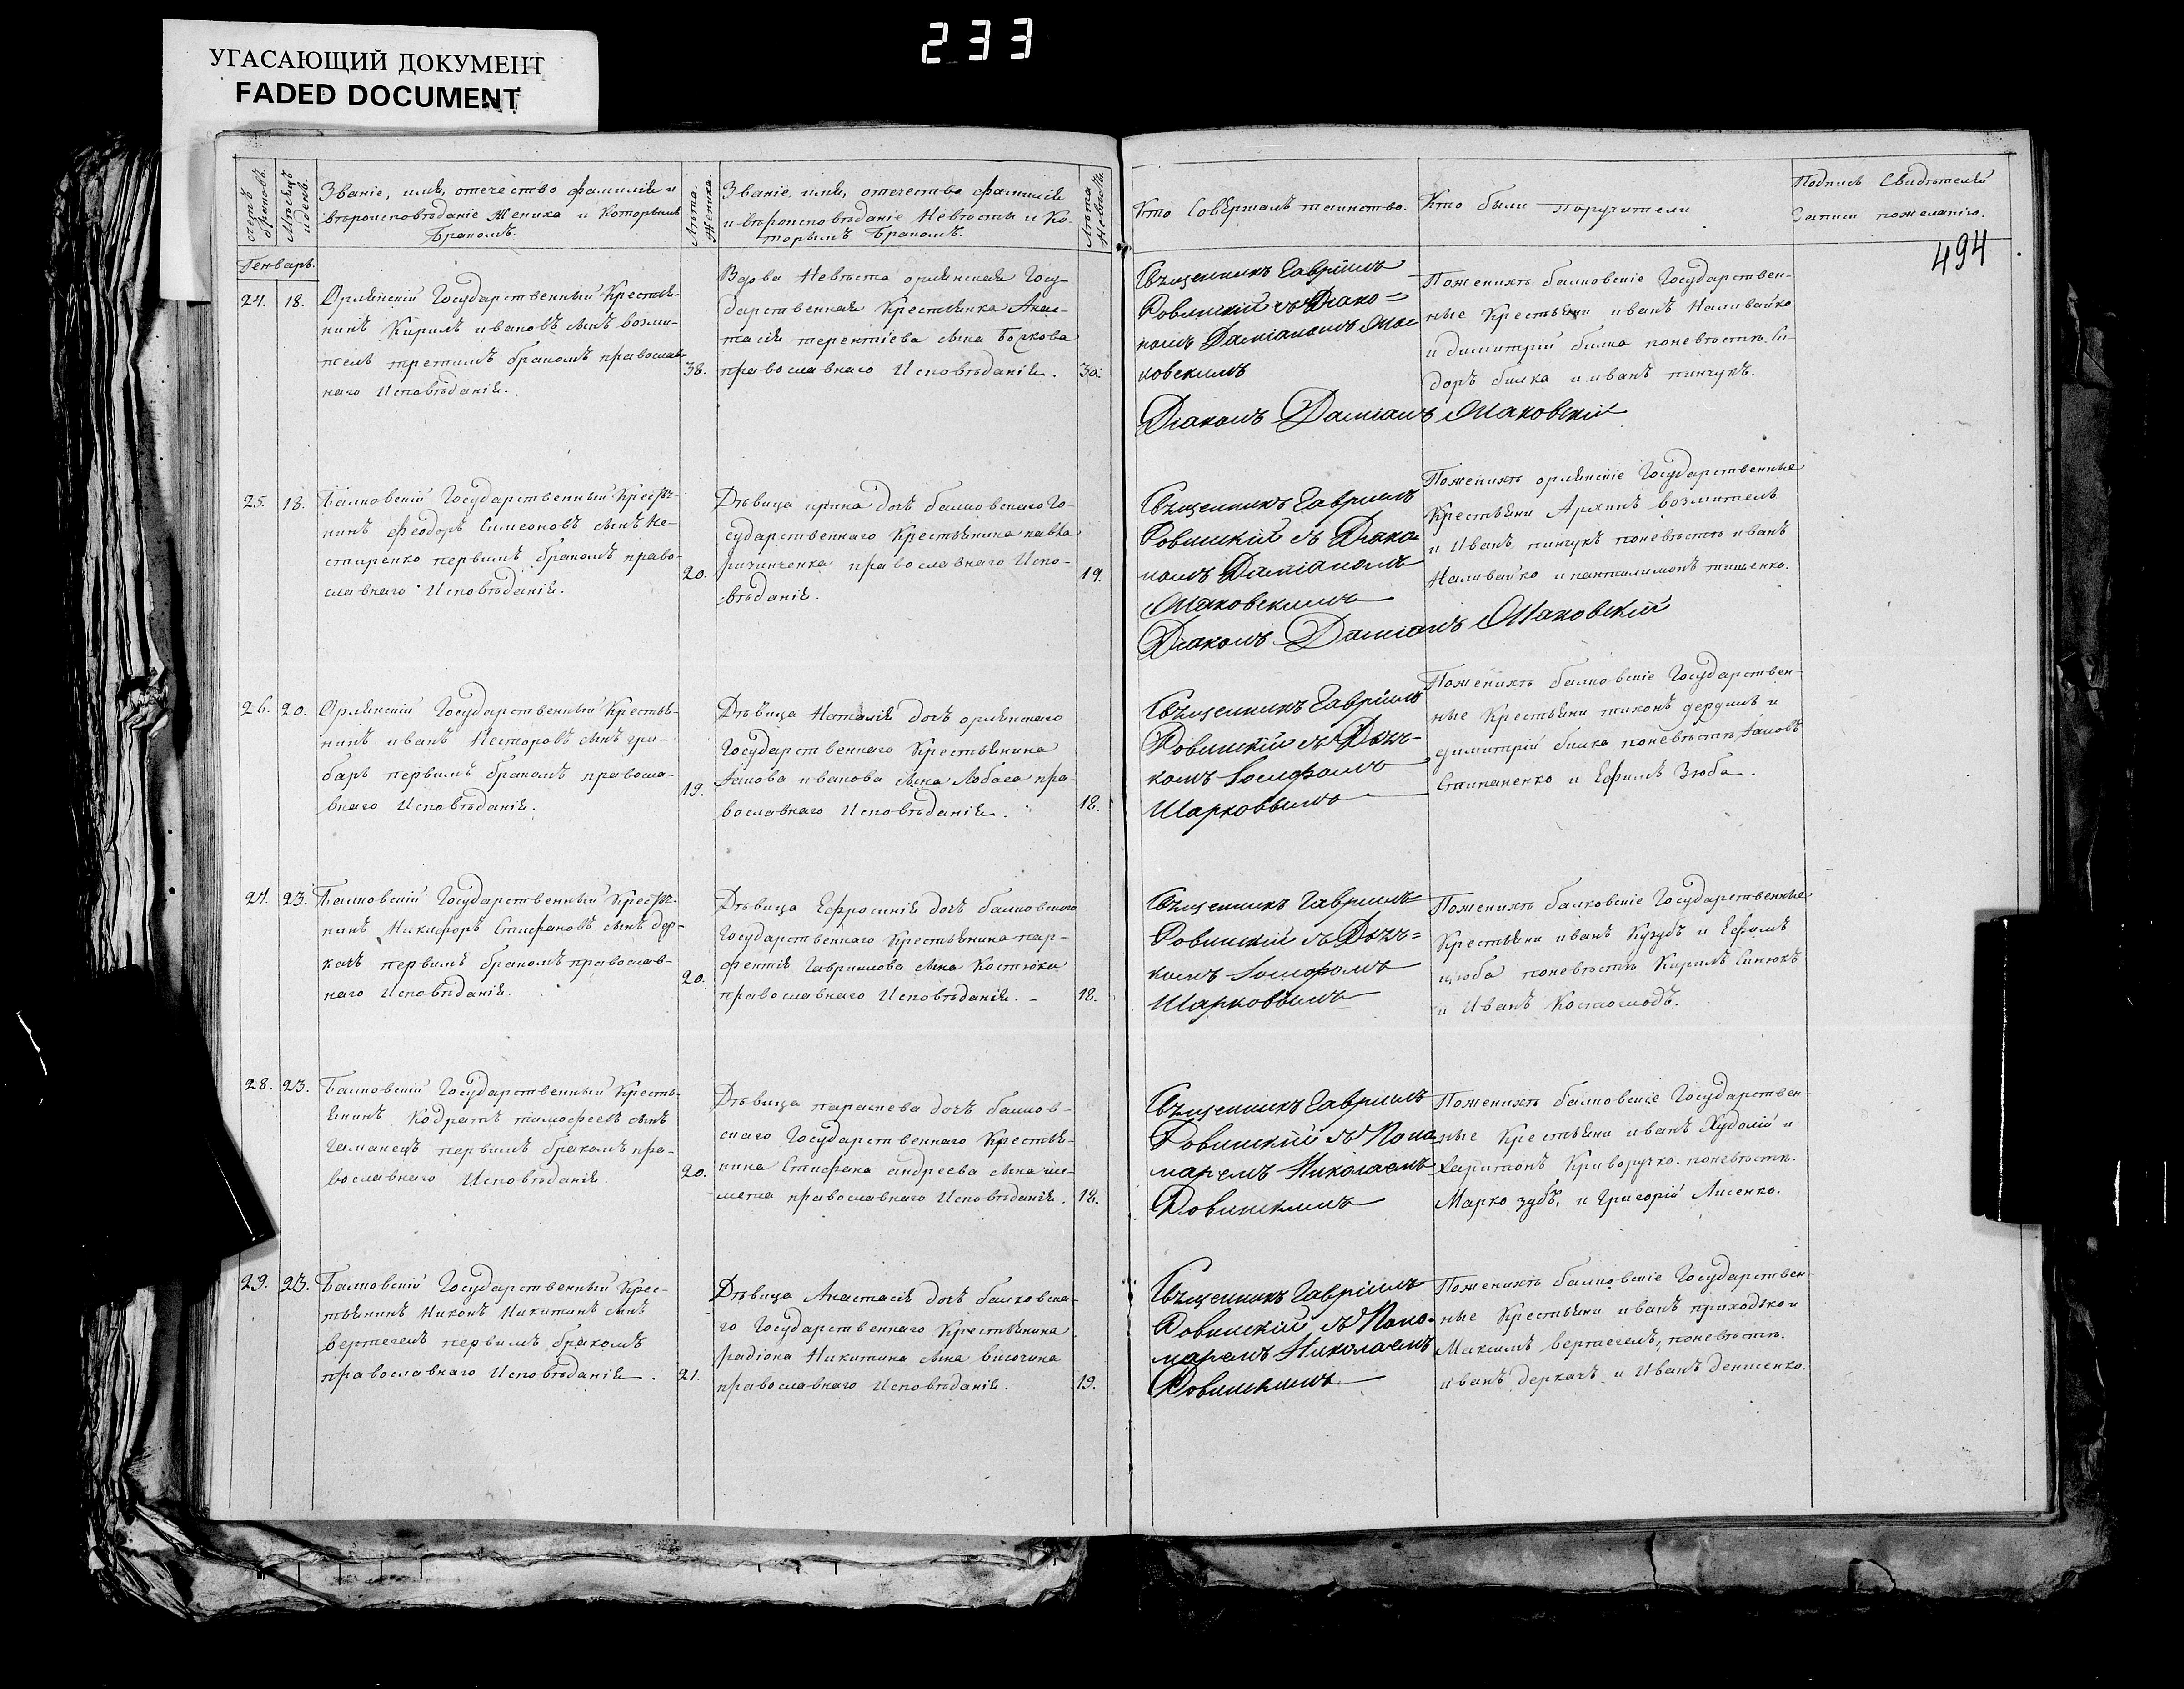 233
УГАСАЮЩИЙ ДОКУМЕНТ
FADED DOCUMENT
Счетъ браковъ.
Мѣсяцъ и день.
Званіе, имя, отечество фамилія и
вѣроисповѣданіе Жениха и Которымъ
Бракомъ.
Лѣта Жениха.
Званіе имя, отечество фамилія
и вѣроисповѣданіе Невѣсты и Ко-
торымъ Бракомъ.
Лѣта Невѣсты.
Кто Совершалъ таинство.
Кто были поручители
Подпись Свидѣтелей
Записи пожеланію.
494
Генварь.
24. 18.
Орлянскій Государственный Крестья-
нинъ Кирилъ ивановъ сынъ возми-
тель третимъ бракомъ православ-
наго Исповѣданія.
38.
Вдова Невѣста орлянская Госу-
дарственная Крестьянка Анас-
тасія терентіева сына Бочкова
православнаго Исповѣданія.
30.
Священникъ Гавріилъ
Ровинскій съ Діако-
номъ Даміаномъ Ма-
ковскимъ
Діаконъ Даміанъ Маковскій
Поженихѣ балковсніе Государствен-
ные Крестьяни иванъ Наливайко
и димитрій билка поневѣстѣ Си-
доръ билка и иванъ пинчукъ.
25. 18.
Балковскій Государственный Крестья-
нинъ Феодоръ Симеоновъ сынъ Не-
стиренко первимъ бракомъ право-
славнаго Исповѣданія.
20.
Дѣвица ирина дочь балковскаго Го-
сударственнаго Крестьянина павла
ричинченка православнаго Испо-
вѣданія.
19.
Священникъ Гавріилъ
Ровинскій съ Діако-
номъ Даміаномъ
Маковскимъ
Діаконъ Даміанъ Маковскій
Поженихѣ орлянсніе Государственные
Крестьяни Архипъ возмитель
и Иванъ пинчукъ поневѣстѣ иванъ
Наливайко и панталимонъ тищенко.
26. 20.
Орлянскій Государственный Крестья-
нинъ иванъ Несторовъ сынъ гри-
барь первимъ бракомъ правосла-
внаго Исповѣданія.
19.
Дѣвица Наталія дочь орлянскаго
Государственнаго Крестьянина
Іакова иванова сына Лобаса пра-
вославнаго Исповѣданія.
18.
Священникъ Гавріилъ
Ровинскій съ Дьяч-
комъ Іосифомъ
Шарковымъ
Поженихѣ балковсніе Государствен-
ные Крестьяни тихонъ дердишъ и
димитрій билка, поневѣстѣ Іаковъ
Стипаненко и Ефимъ Зюба.
27. 23.
Балковскій Государственный Крестья-
нинъ Никифоръ Стифановъ сынъ дер-
качъ первимъ бракомъ православ-
наго Исповѣданія.
20.
Дѣвица Ефросинія дочь балковскаго
Государственнаго Крестьянина пар-
фентія Гаврилова сына Костюка
православнаго Исповѣданія. -
18.
Священникъ Гавріилъ
Ровинскій съ Дьяч-
комъ Іосифомъ
Шарковымъ
Поженихѣ балковсніе Государственные
Крестьяни иванъ Кузубъ и Ефимъ
цюба поневѣстѣ Кирилъ Синюкъ
и Иванъ Костоглодъ.
28. 23.
Балковскій Государственный Кресть-
янинъ Кодратъ тимофеевъ сынъ
Гаманецъ первимъ бракомъ пра-
вославнаго Исповѣданія.
20.
Дѣвица параскева дочь балков-
скаго Государственнаго Крестья-
нина Стифана андреева сына ши-
мета православнаго Исповѣданія.
18.
Священникъ Гавріилъ
Ровинскій съ Поно-
маремъ Николаемъ
Ровинскимъ
Поженихѣ балковсніе Государствен-
ные Крестьяни иванъ Худолій и
Харитонъ Криворучко. поневѣстѣ.
Марко зубъ, и Григорій Лисенко.
29. 23.
Балковскій Государственный Крес-
тьянинъ Никонъ Никитинъ сынъ
вертегелъ первимъ бракомъ
православнаго Исповѣданія.
21.
Дѣвица Анастасія дочь балковска-
го Государственнаго Крестьянина
радіона Никитина сына височина
православнаго Исповѣданія.
19.
Священникъ Гавріилъ
Ровинскій съ Поно-
маремъ Николаемъ
Ровинскимъ
Поженихѣ балковсніе Государствен-
ные Крестьяни иванъ приходько и
Максимъ вертегелъ, поневѣстѣ.
иванъ деркачъ и Иванъ денисенко.